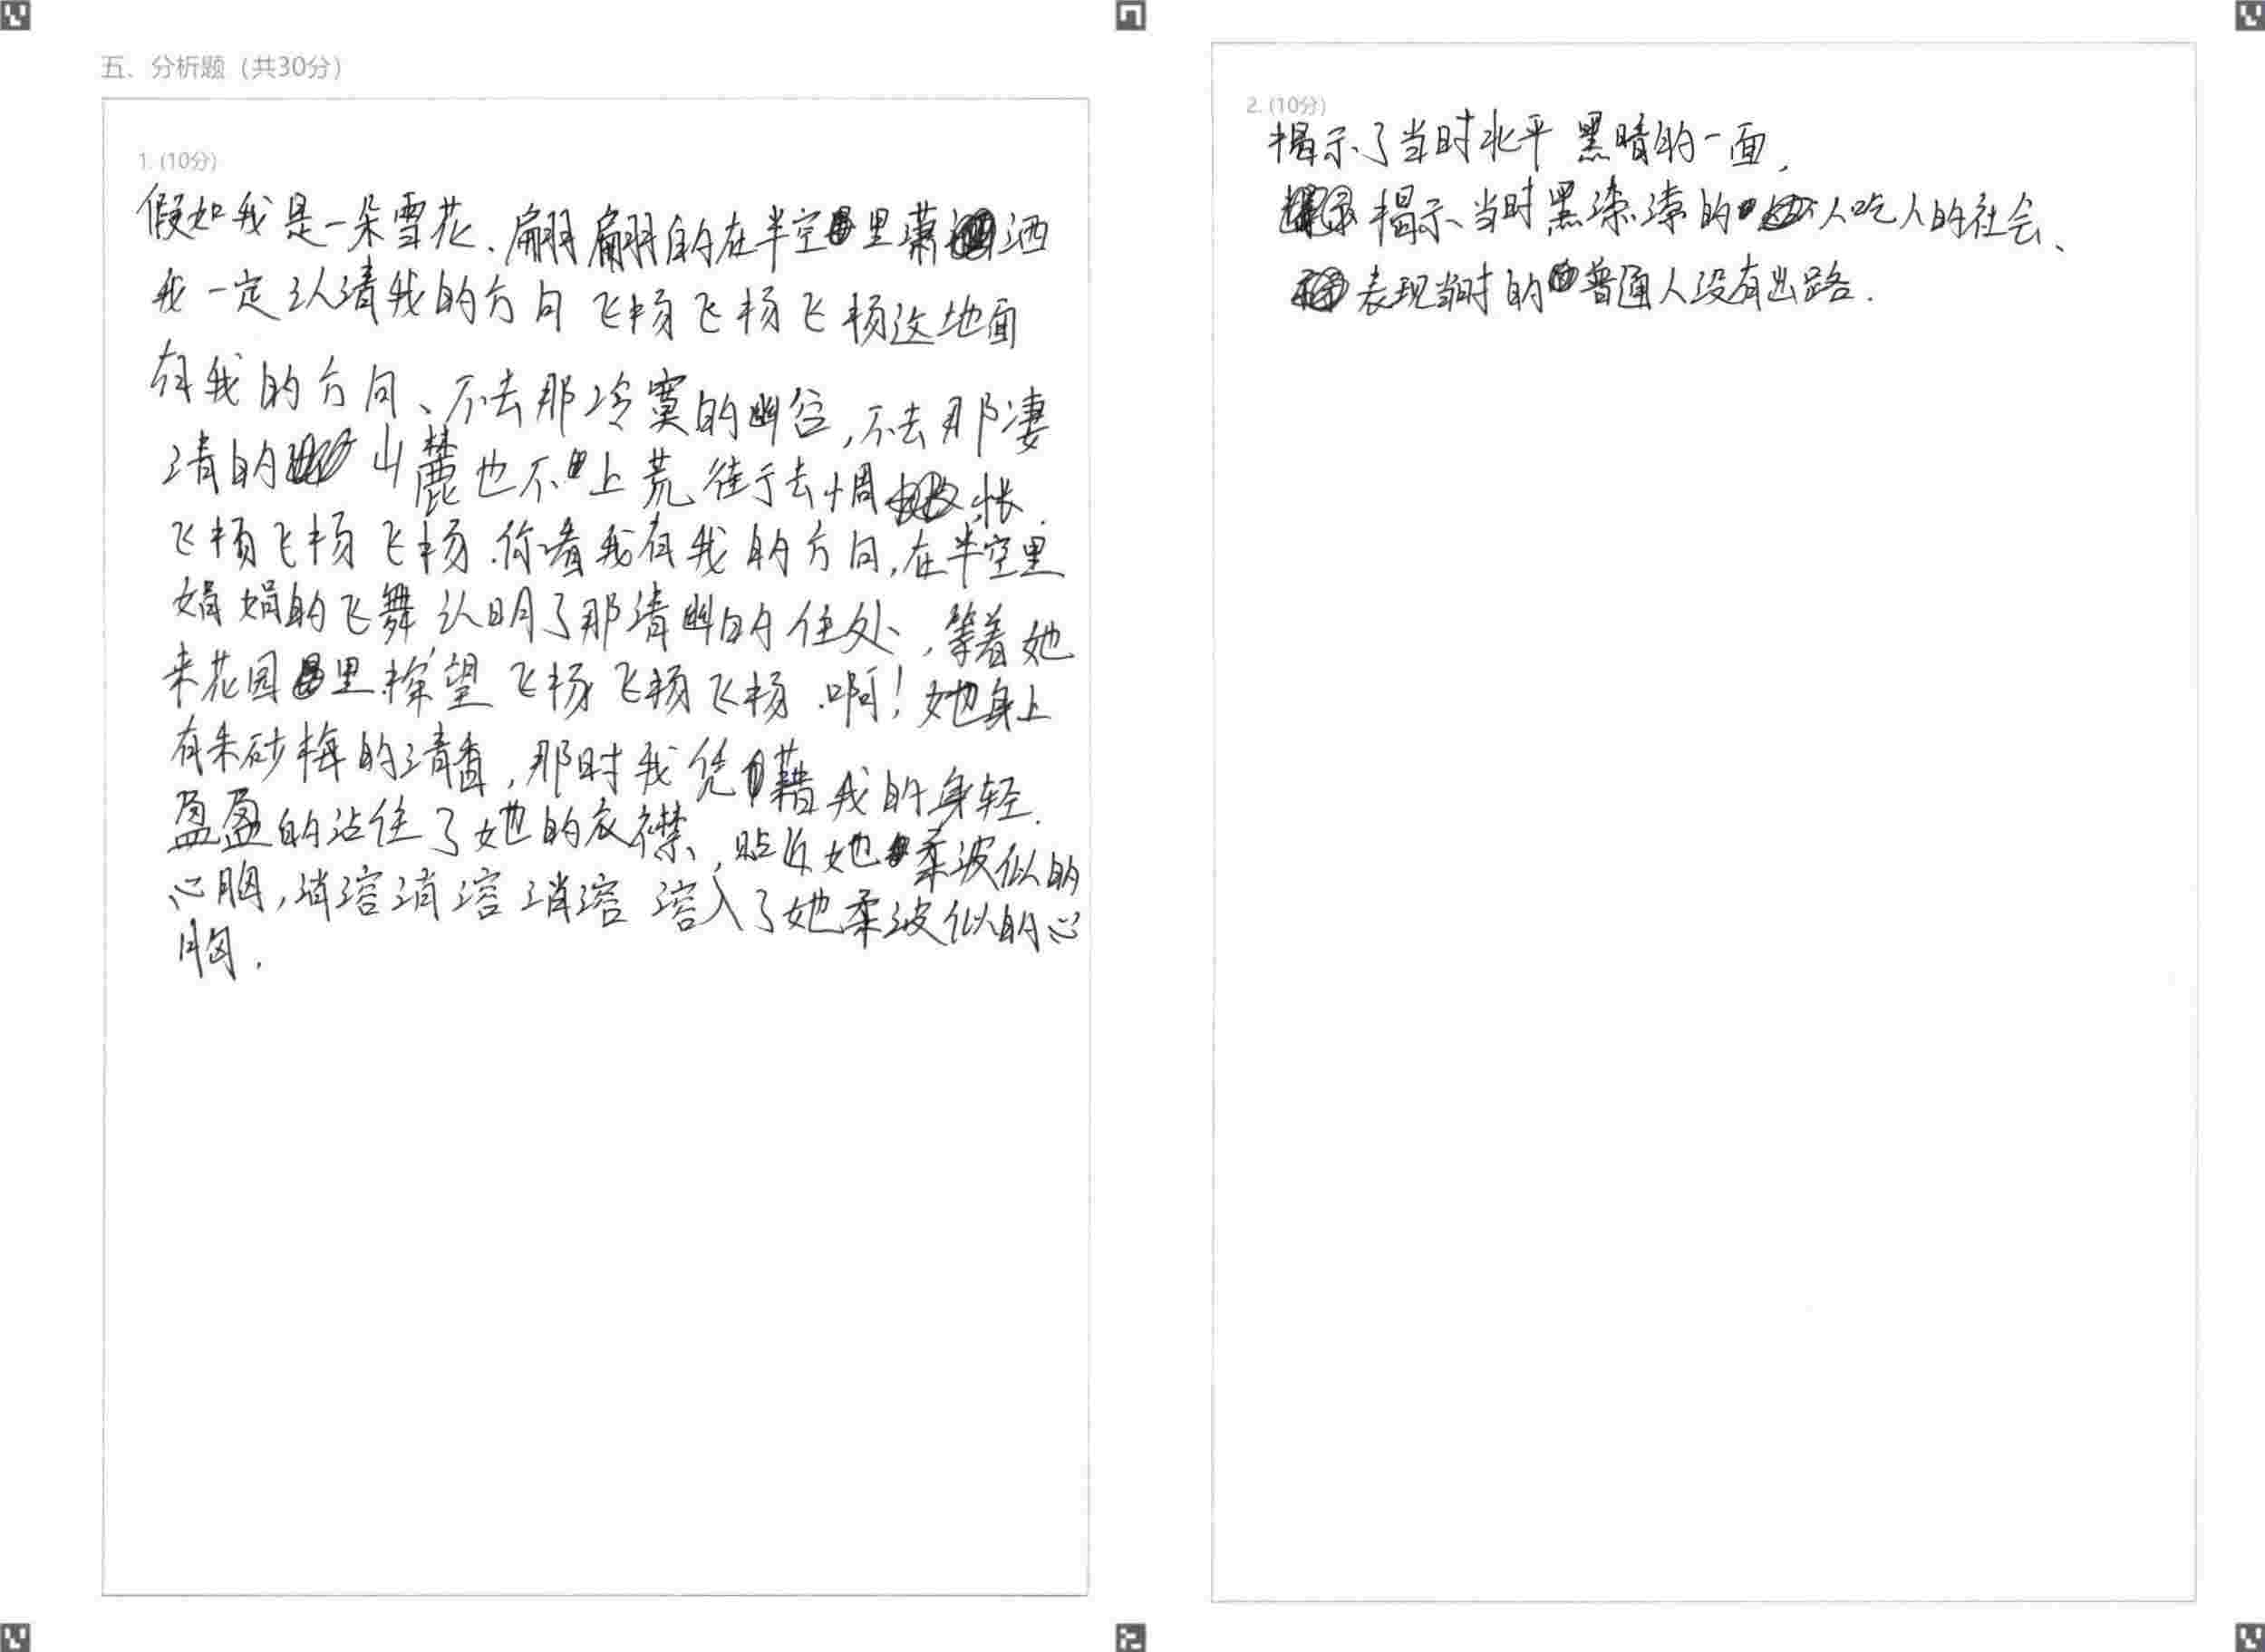 五、分析题（共30分）
1. (10分)
假如我是一朵雪花、翩翩的在半空里潇洒
我一定认清我的方向飞扬飞扬飞扬这地面
有我的方向、不去那冷寞的幽谷,不去那凄
清的山麓也不上荒街于去惆怅.
飞扬飞扬飞扬.你看我有我的方向,在半空里
娟娟的飞舞,认明了那清幽的住处,等着她
来花园里探望飞扬飞扬飞扬.啊!她身上
有朱砂梅的清香,那时我凭藉我的身轻.
盈盈的沾住了她的衣襟,贴近她柔波似的
心胸,消溶消溶消溶溶入了她柔波似的心
胸.
2. (10分)
揭示了当时北平黑暗的一面.
揭示当时黑漆漆的人吃人的社会、
表现当时的普通人没有出路.